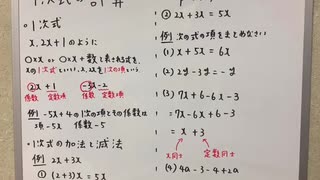 1次式の計算
○1次式
x, 2x+1のように
○x や ○x+数と表される式を、
xの1次式といい、x, 2xを1次の項という。
②x+1
係数 定数項
-3x-2
係数 定数項
例 -5x+4の1次の項とその係数は
項-5x 係数-5
○1次式の加法と減法
例 2x+3x
① (2+3)x = 5x
② 2x+3x = 5x
例 次の式の項をまとめなさい
(1) x+5x = 6x
(2) 2y-3y = -y
(3) 7x+6-6x-3
= 7x-6x+6-3
= x+3
x同士 定数同士
(4) 4a-3-4+2a